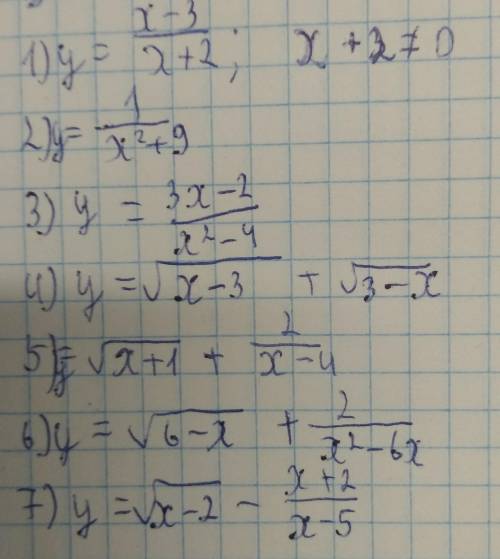 1) y = (x-3)/(x+2); x + 2 ≠ 0
2) y = 1/(x²+9)
3) y = (3x-2)/(x²-4)
4) y = √(x-3) + √(3-x)
5) y = √(x+1) + 2/(x-4)
6) y = √(6-x) + 2/(x²-6x)
7) y = √(x-2) - (x+2)/(x-5)